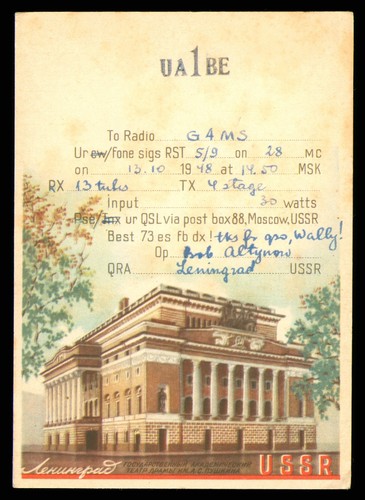 UA1BE
To Radio G4MS
Ur cw/fone sigs RST 5/9 on 28 MC
on 13.10 1948 at 14.50 MSK
RX 13 tubes TX 4 stage
Input 30 watts
Pse/tnx ur QSL via post box 88, Moscow, USSR
Best 73 es fb dx! tks fr qso, Wally!
Op Bob Altynow
QRA Leningrad USSR
Ленинград
USSR